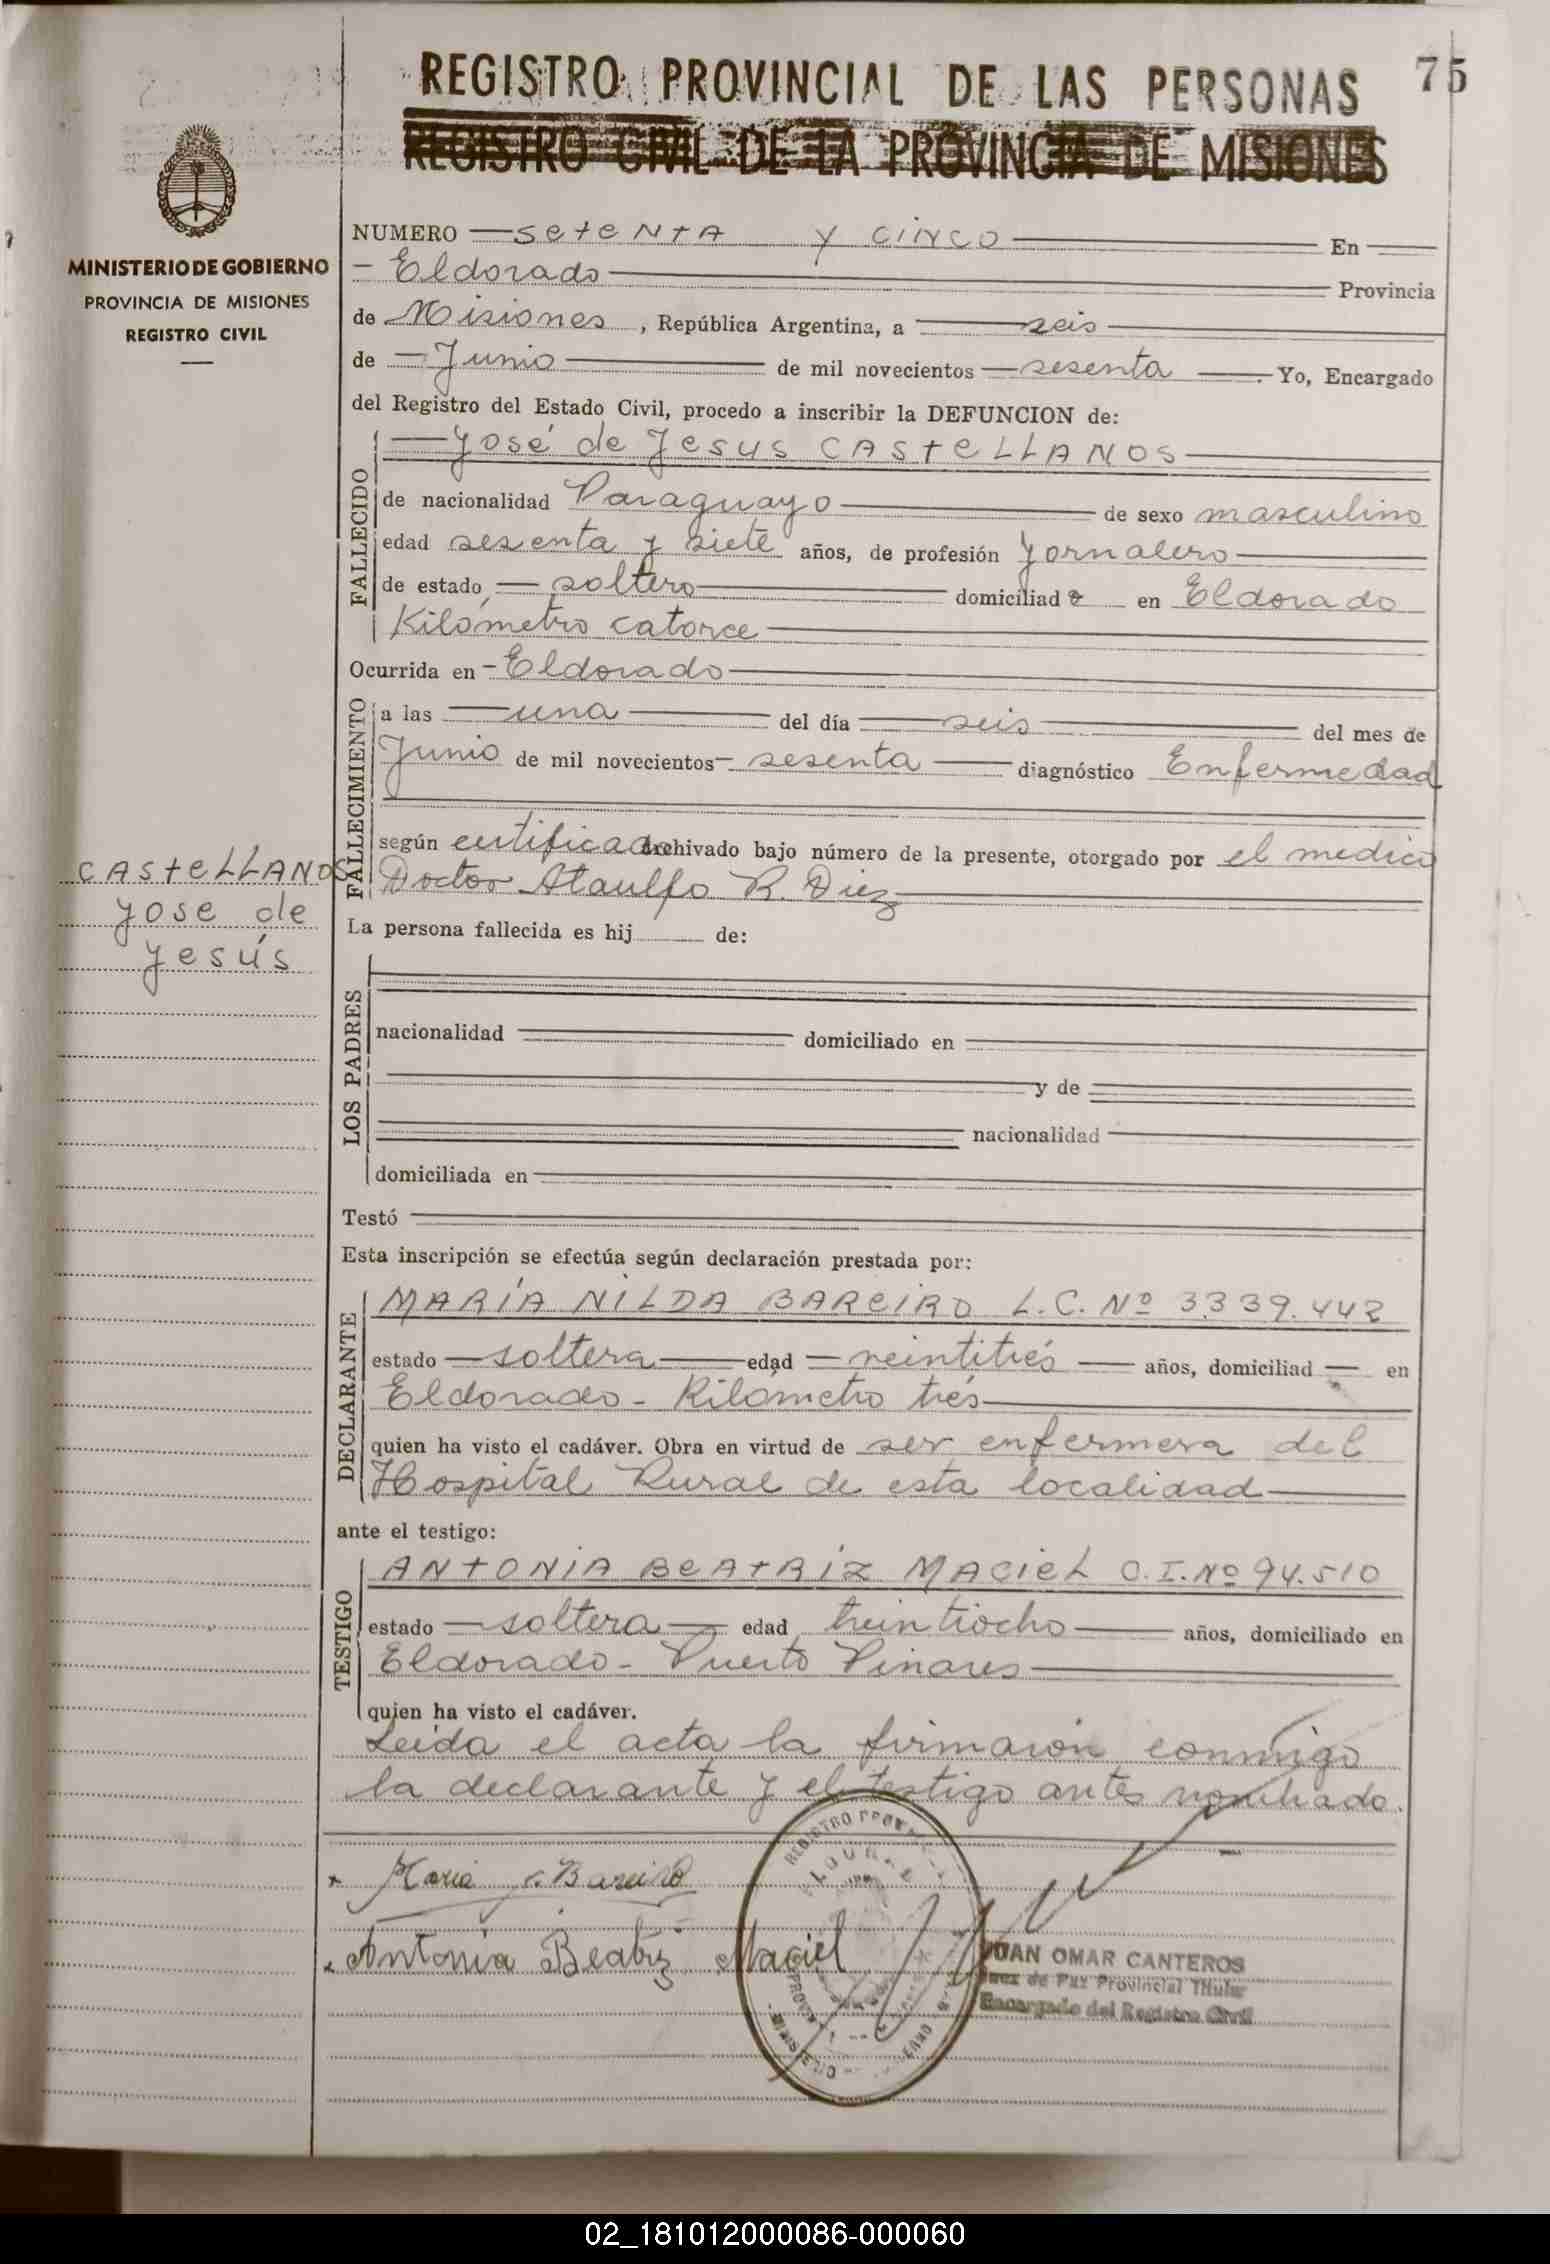 75
REGISTRO PROVINCIAL DE LAS PERSONAS
REGISTRO CIVIL DE LA PROVINCIA DE MISIONES
MINISTERIO DE GOBIERNO
PROVINCIA DE MISIONES
REGISTRO CIVIL
CASTELLANOS
José de
Jesús
NUMERO setenta y cinco En
Eldorado Provincia
de Misiones, República Argentina, a seis
de Junio de mil novecientos sesenta. Yo, Encargado
del Registro del Estado Civil, procedo a inscribir la DEFUNCION de:
FALLECIDO
José de Jesus CASTELLANOS
de nacionalidad Paraguayo de sexo masculino
edad sesenta y siete años, de profesión Jornalero
de estado soltero domiciliado en Eldorado
Kilómetro catorce
Ocurrida en Eldorado
FALLECIMIENTO
a las una del día seis del mes de
Junio de mil novecientos sesenta diagnóstico Enfermedad
según certificado archivado bajo número de la presente, otorgado por el medico
Doctor Ataulfo R. Diez
La persona fallecida es hij de:
LOS PADRES
nacionalidad domiciliado en
y de
nacionalidad
domiciliada en
Testó
Esta inscripción se efectúa según declaración prestada por:
DECLARANTE
MARÍA NILDA BAREIRO L.C. Nº 3.339.442
estado soltera edad veintitrés años, domiciliad en
Eldorado - Kilómetro tres
quien ha visto el cadáver. Obra en virtud de ser enfermera del
Hospital Rural de esta localidad
ante el testigo:
TESTIGO
ANTONIA BEATRIZ MACIEL C.I. Nº 94.510
estado soltera edad treintiocho años, domiciliado en
Eldorado - Puerto Pinares
quien ha visto el cadáver.
Leída el acta la firmaron conmigo
la declarante y el testigo antes nombrado.
María N. Bareiro
Antonia Beatriz Maciel
JUAN OMAR CANTEROS
Juez de Paz Provincial Titular
Encargado del Registro Civil
02_181012000086-000060